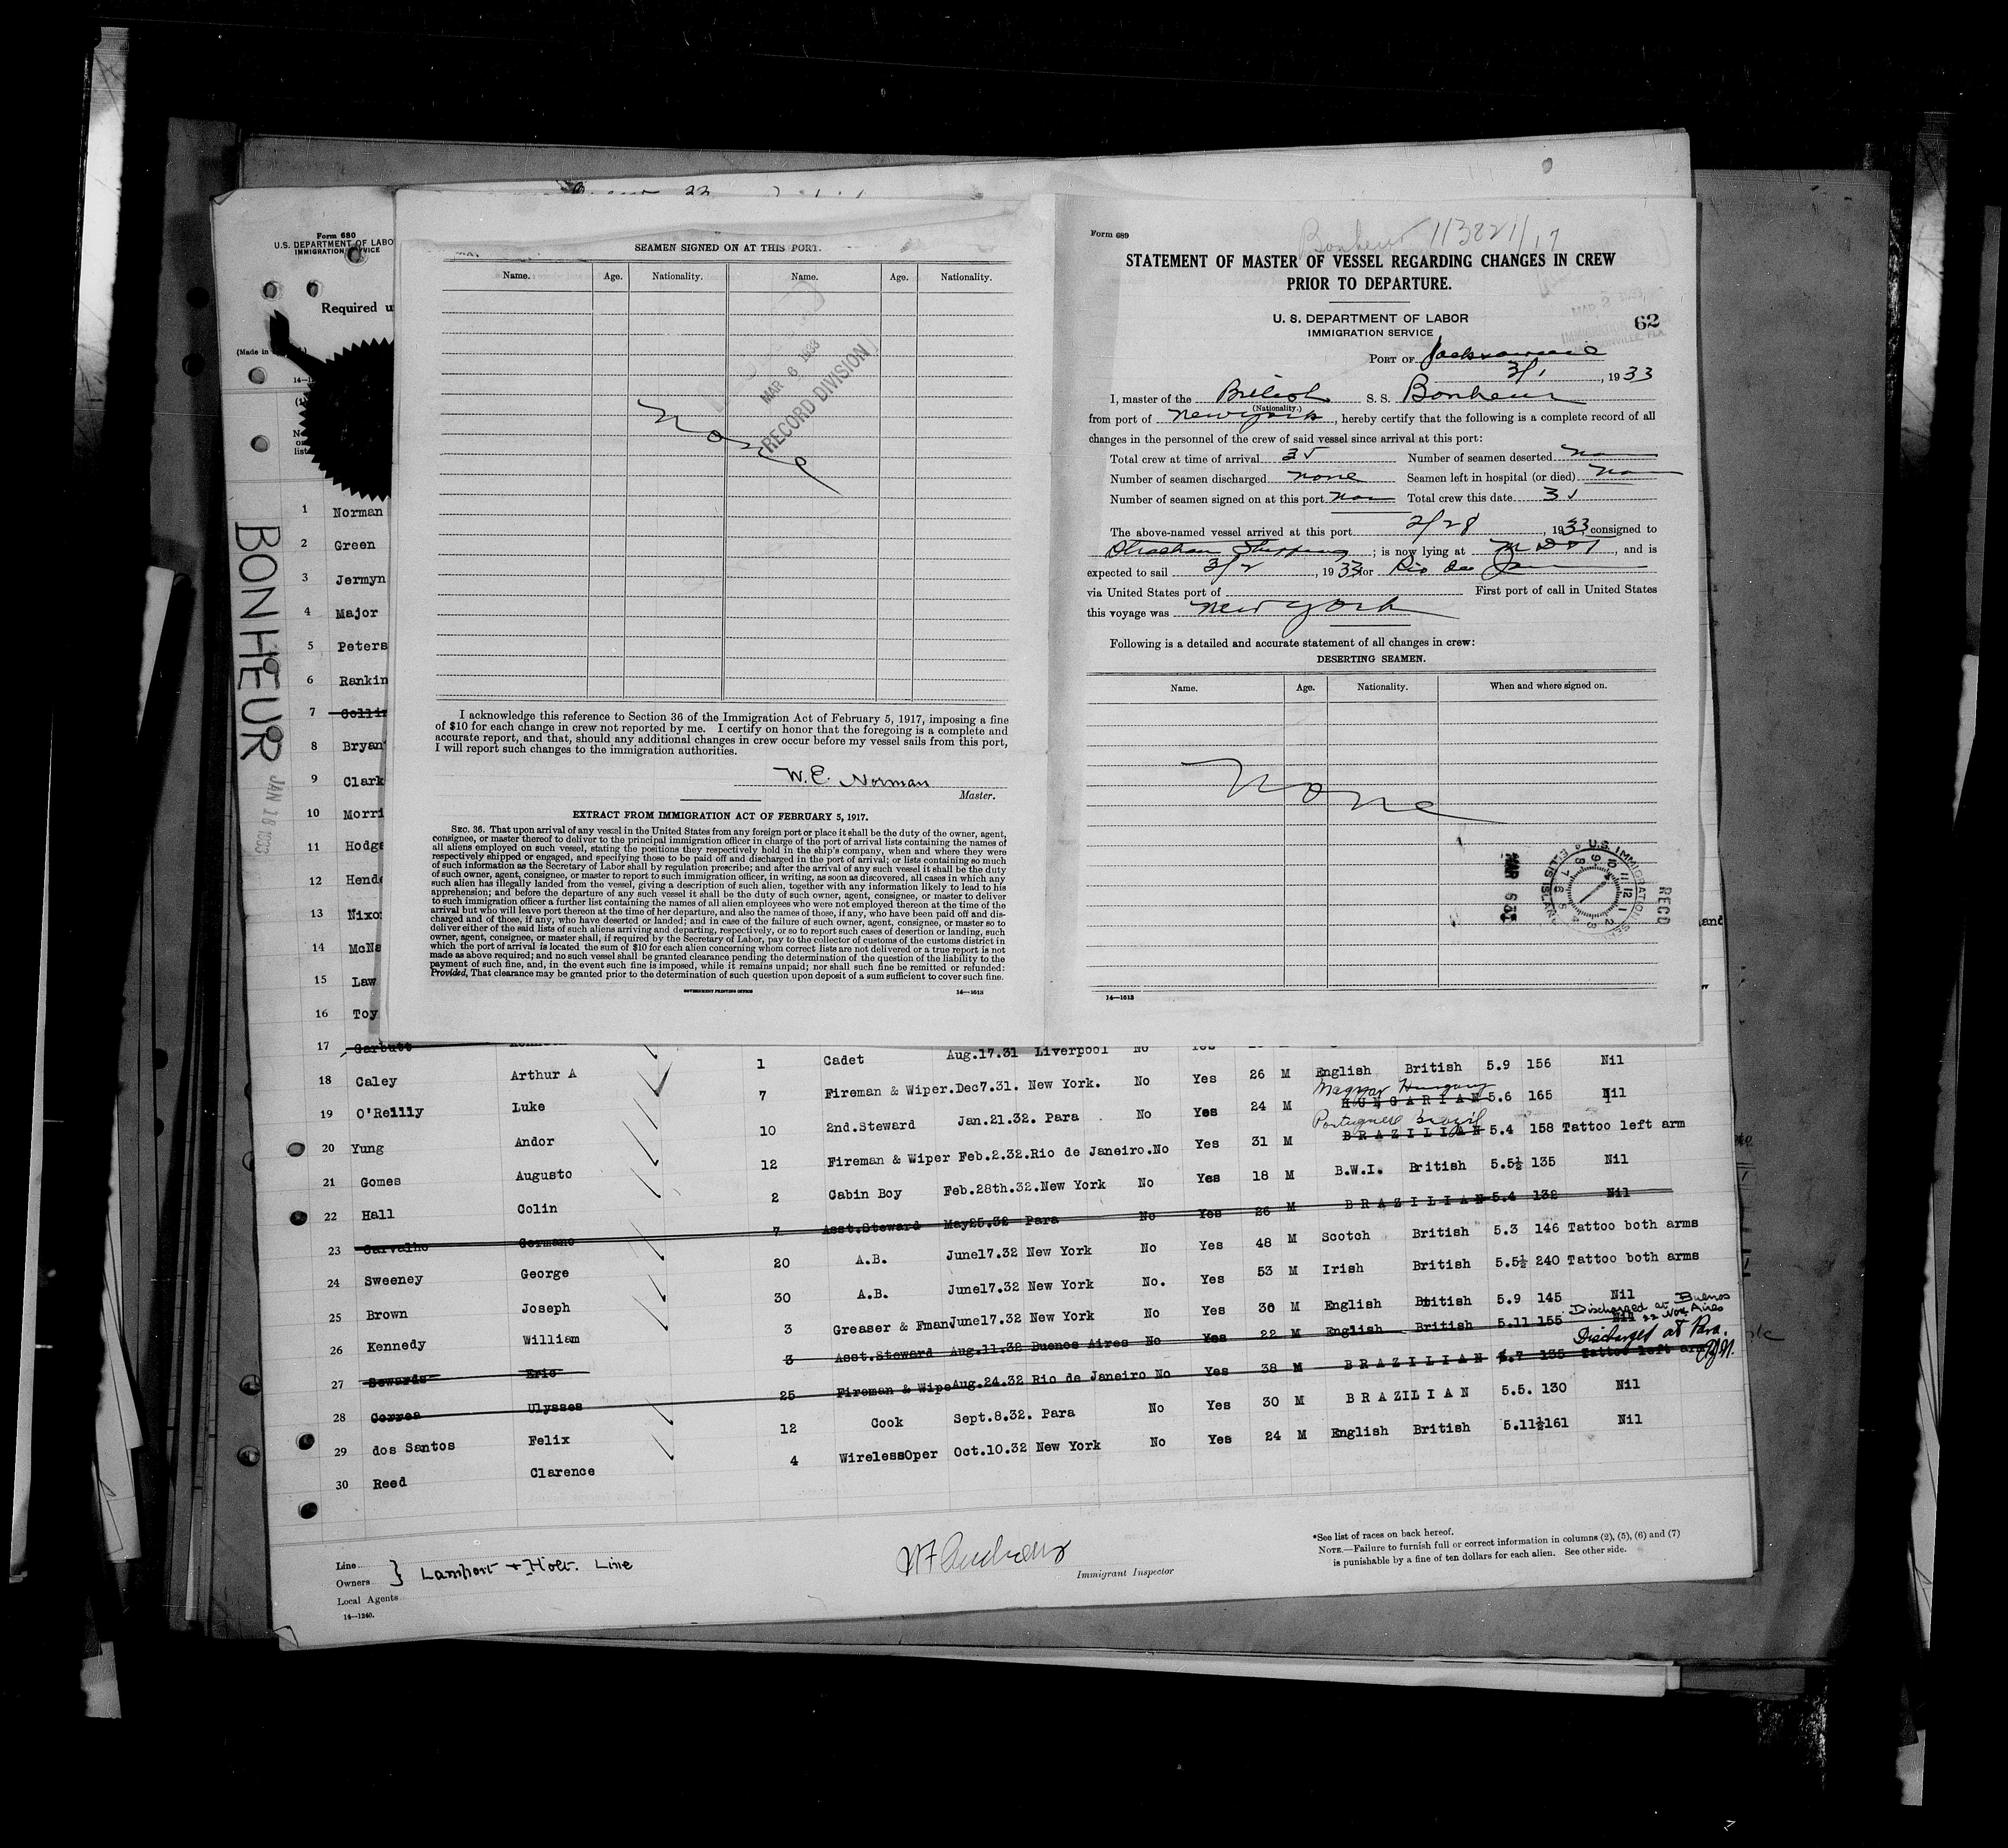 Form 680
U.S. DEPARTMENT OF LABO
IMMIGRATION SERVICE
Required u
(Made in
BONHEUR
JAN 18 1933
1 Norman
2 Green
3 Jermyn
4 Major
5 Peters
6 Rankin
7 Collin
8 Bryan
9 Clark
10 Morri
11 Hodge
12 Hende
13 Nixo
14 McNa
15 Law
16 Toy
SEAMEN SIGNED ON AT THIS PORT.
Name. Age. Nationality. Name. Age. Nationality.
None
MAR 6 1933
RECORD DIVISION
I acknowledge this reference to Section 36 of the Immigration Act of February 5, 1917, imposing a fine
of $10 for each change in crew not reported by me. I certify on honor that the foregoing is a complete and
accurate report, and that, should any additional changes in crew occur before my vessel sails from this port,
I will report such changes to the immigration authorities.
W. E. Norman
Master.
EXTRACT FROM IMMIGRATION ACT OF FEBRUARY 5, 1917.
SEC. 36. That upon arrival of any vessel in the United States from any foreign port or place it shall be the duty of the owner, agent,
consignee, or master thereof to deliver to the principal immigration officer in charge of the port of arrival lists containing the names of
all aliens employed on such vessel, stating the positions they respectively hold in the ship's company, when and where they were
respectively shipped or engaged, and specifying those to be paid off and discharged in the port of arrival; or lists containing so much
of such information as the Secretary of Labor shall by regulation prescribe; and after the arrival of any such vessel it shall be the duty
of such owner, agent, consignee, or master to report to such immigration officer, in writing, as soon as discovered, all cases in which any
such alien has illegally landed from the vessel, giving a description of such alien, together with any information likely to lead to his
apprehension; and before the departure of any such vessel it shall be the duty of such owner, agent, consignee, or master to deliver
to such immigration officer a further list containing the names of all alien employees who were not employed thereon at the time of the
arrival but who will leave port thereon at the time of her departure, and also the names of those, if any, who have been paid off and dis-
charged and of those, if any, who have deserted or landed; and in case of the failure of such owner, agent, consignee, or master so to
deliver either of the said lists of such aliens arriving and departing, respectively, or so to report such cases of desertion or landing, such
owner, agent, consignee, or master shall, if required by the Secretary of Labor, pay to the collector of customs of the customs district in
which the port of arrival is located the sum of $10 for each alien concerning whom correct lists are not delivered or a true report is not
made as above required; and no such vessel shall be granted clearance pending the determination of the question of the liability to the
payment of such fine, and, in the event such fine is imposed, while it remains unpaid; nor shall such fine be remitted or refunded:
Provided, That clearance may be granted prior to the determination of such question upon deposit of a sum sufficient to cover such fine.
GOVERNMENT PRINTING OFFICE 14—1613
Form 689
Bonheur 113821/17
STATEMENT OF MASTER OF VESSEL REGARDING CHANGES IN CREW
PRIOR TO DEPARTURE.
U. S. DEPARTMENT OF LABOR
IMMIGRATION SERVICE
62
PORT OF Jacksonville
3/1, 1933
I, master of the British S. S. Bonheur
(Nationality.)
from port of New York, hereby certify that the following is a complete record of all
changes in the personnel of the crew of said vessel since arrival at this port:
Total crew at time of arrival 35 Number of seamen deserted non
Number of seamen discharged none Seamen left in hospital (or died) non
Number of seamen signed on at this port non Total crew this date 35
The above-named vessel arrived at this port 2/28, 1933, consigned to
Strachan Shipping; is now lying at M D & T, and is
expected to sail 3/2, 1933 for Rio de Jan
via United States port of First port of call in United States
this voyage was New York
Following is a detailed and accurate statement of all changes in crew:
DESERTING SEAMEN.
Name. Age. Nationality. When and where signed on.
None
MAR 6 33
U.S. IMMIGRATION SERVICE ELLIS ISLAND
RECD
14—1613
17 Garbutt
18 Caley Arthur A 1 Cadet Aug.17.31 Liverpool No
19 O'Reilly Luke 7 Fireman & Wiper. Dec7.31. New York. No Yes 26 M English British 5.9 156 Nil
20 Yung Andor 10 2nd.Steward Jan.21.32. Para No Yes 24 M Magyar Hungary HUNGARIAN 5.6 165 Nil
21 Gomes Augusto 12 Fireman & Wiper Feb.2.32.Rio de Janeiro.No Yes 31 M Portuguese Brazil BRAZILIAN 5.4 158 Tattoo left arm
22 Hall Colin 2 Cabin Boy Feb.28th.32.New York No Yes 18 M B.W.I. British 5.5½ 135 Nil
23 Carvalho Germano 7 Asst.Steward May25.32 Para No Yes 26 M BRAZILIAN 5.4 132 Nil
24 Sweeney George 20 A.B. June17.32 New York No Yes 48 M Scotch British 5.3 146 Tattoo both arms
25 Brown Joseph 30 A.B. June17.32 New York No. Yes 53 M Irish British 5.5½ 240 Tattoo both arms
26 Kennedy William 3 Greaser & FmanJune17.32 New York No Yes 30 M English British 5.9 145 Nil
27 Sewards Eric 3 Asst.Steward Aug.11.32 Buenos Aires No Yes 22 M English British 5.11 155 Nil Discharged at Buenos Aires 22 Nov
28 Correa Ulysses 25 Fireman & WipeAug.24.32 Rio de Janeiro No Yes 38 M BRAZILIAN 5.7 135 Tattoo left arm Discharged at Para.
29 dos Santos Felix 12 Cook Sept.8.32. Para No Yes 30 M BRAZILIAN 5.5. 130 Nil
30 Reed Clarence 4 WirelessOper Oct.10.32 New York No Yes 24 M English British 5.11½161 Nil
Line
Owners } Lamport + Holt. Line
Local Agents
14—1240.
Immigrant Inspector
*See list of races on back hereof.
NOTE.—Failure to furnish full or correct information in columns (2), (5), (6) and (7)
is punishable by a fine of ten dollars for each alien. See other side.